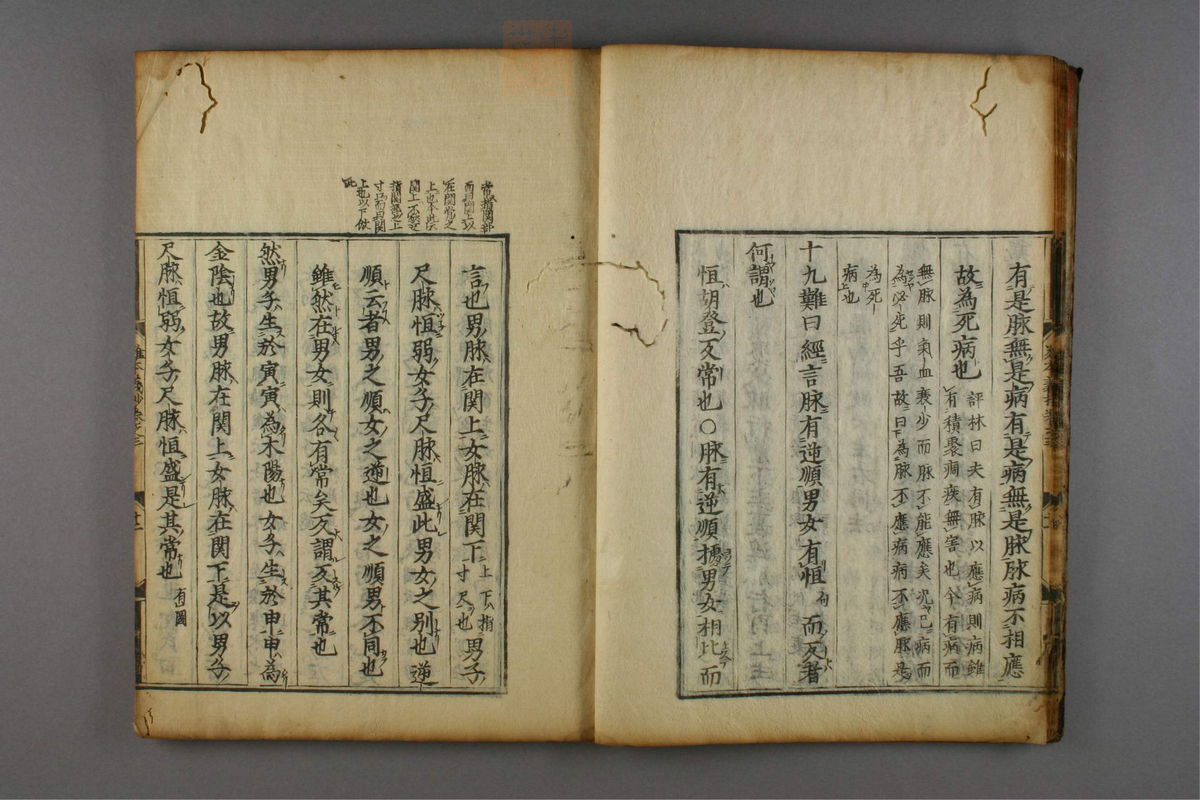 有是脉無是病有是病無是脉脉病不相應
故為死病也
評林曰夫有脉以應病則病雖
有積聚痼疾無害也今有病而
無脉則氣血衰少而脉不能應矣况已病而
為必死乎吾故曰為脉不應病病不應脉是
為死
病也
十九難曰經言脉有逆順男女有恒而反者
何謂也
恒胡登反常也○脉有逆順據男女相比而
言也男脉在関上女脉在関下
上下指
寸尺也
男子
尺脉恒弱女子尺脉恒盛此男女之別也逆
順云者男之順女之逆也女之順男不同也
雖然在男女則各有常矣反謂反其常也
然男子生於寅寅為木陽也女子生於申申為
金陰也故男脉在関上女脉在関下是以男子
尺脉恒弱女子尺脉恒盛是其常也
有圖
常據関部
而曰関上以
在関常之
関上
寸口而曰関
上也以下倣
此